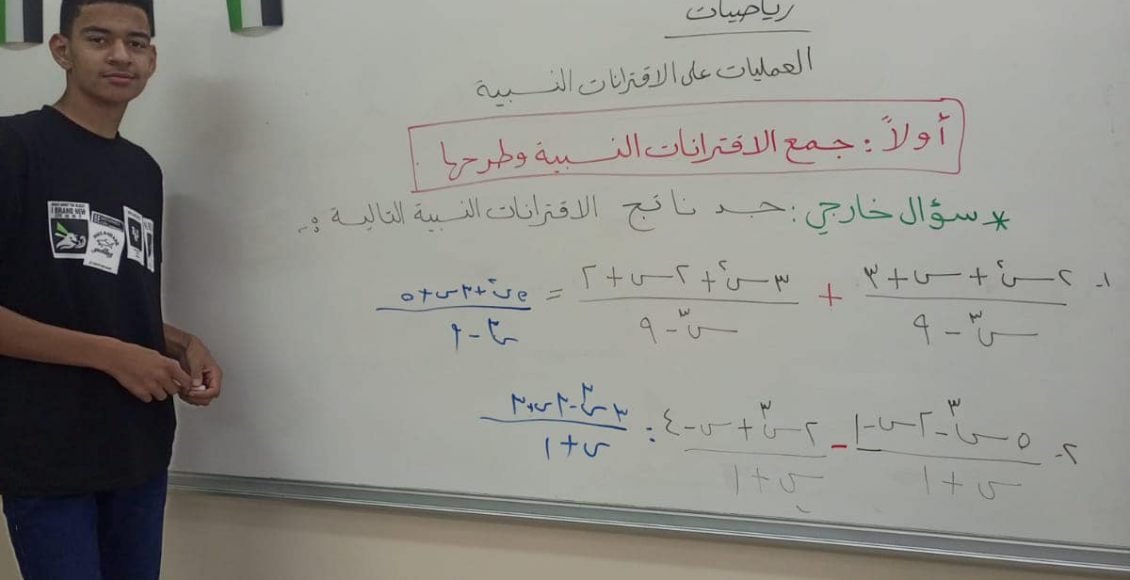 رياضيات
العمليات على الاقترانات النسبية
أولاً : جمع الاقترانات النسبية وطرحها
* سؤال خارجي : جد ناتج الاقترانات النسبية التالية :
١- ٢س² + س + ٣ / س³ - ٩ + ٣س² + ٢س + ٢ / س³ - ٩ = ٥س² + ٣س + ٥ / س³ - ٩
٢- ٥س³ - ٢س - ١ / س + ١ - ٢س³ + س - ٤ / س + ١ : ٣س³ - ٣س + ٣ / س + ١
I BRAND NEW